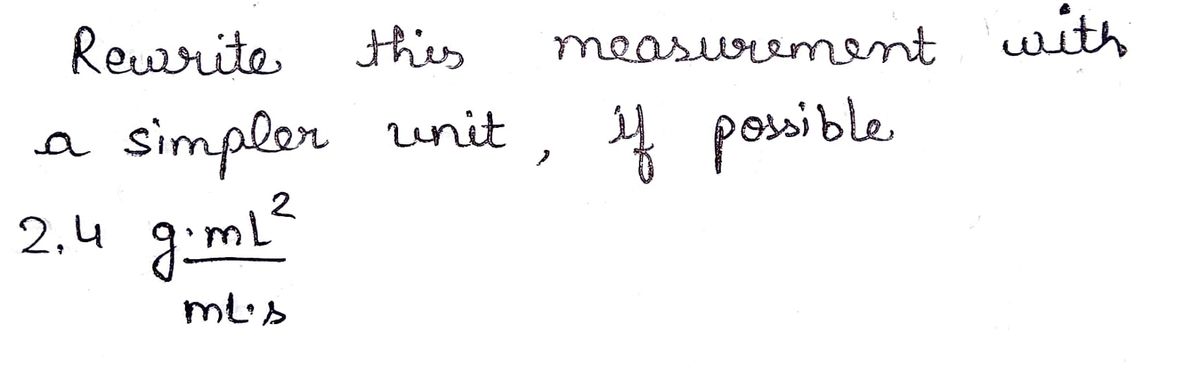 Rewrite this measurement with
a simpler unit, if possible
2.4 g·mL²
mL·s